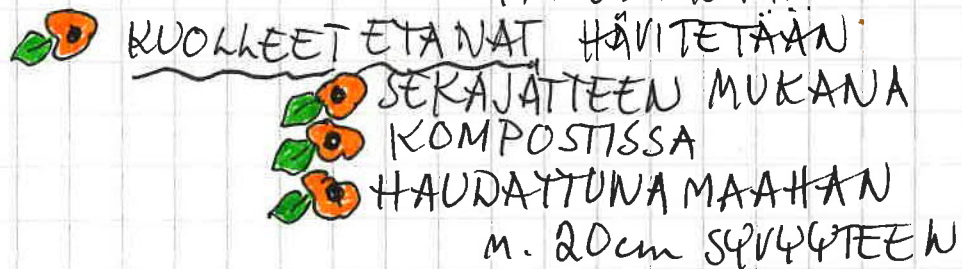 KUOLLEET ETANAT HÄVITETÄÄN
SEKAJÄTTEEN MUKANA
KOMPOSTISSA
HAUDATTUNA MAAHAN
n. 20cm SYVYYTEEN